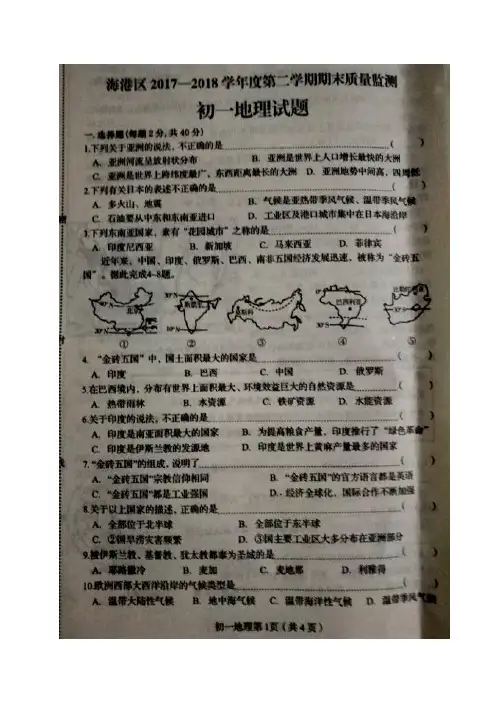 海港区2017—2018学年度第二学期期末质量监测
初一地理试题
一.选择题(每题2分,共40分)
1.下列关于亚洲的说法,不正确的是 ( )
A. 亚洲河流呈放射状分布 B. 亚洲是世界上人口增长最快的大洲
C. 亚洲是世界上跨纬度最广、东西距离最长的大洲 D. 亚洲地势中间高,四周低
2.下列有关日本的表述不正确的是 ( )
A. 多火山、地震 B. 气候是亚热带季风气候、温带季风气候
C. 石油要从中东和东南亚进口 D. 工业区及港口城市集中在日本海沿岸
3.下列东南亚国家,素有“花园城市”之称的是 ( )
A. 印度尼西亚 B. 新加坡 C. 马来西亚 D. 菲律宾
近年来,中国、印度、俄罗斯、巴西、南非五国经济发展迅速,被称为“金砖五
国”。据此完成4-8题。
① ② ③ ④ ⑤
4. “金砖五国”中,国土面积最大的国家是 ( )
A. 印度 B. 巴西 C. 中国 D. 俄罗斯
5.在巴西境内,分布有世界上面积最大、环境效益巨大的自然资源是 ( )
A. 热带雨林 B. 水资源 C. 铁矿资源 D. 水能资源
6.关于印度的说法,不正确的是 ( )
A. 印度是南亚面积最大的国家 B. 为提高粮食产量,印度推行了“绿色革命”
C. 印度是伊斯兰教的发源地 D. 印度是世界上黄麻产量最多的国家
7.“金砖五国”的组成,说明了 ( )
A. “金砖五国”宗教信仰相同 B. “金砖五国”的官方语言都是英语
C. “金砖五国”都是工业强国 D. 经济全球化,国际合作不断加强
8.关于以上国家的描述,正确的是 ( )
A. 全部位于北半球 B. 全部位于东半球
C. ②国旱涝灾害频繁 D. ③国主要工业区大多分布在亚洲部分
9.被伊斯兰教、基督教、犹太教都奉为圣城的是 ( )
A. 耶路撒冷 B. 麦加 C. 麦地那 D. 利雅得
10.欧洲西部大西洋沿岸的气候类型是 ( )
A. 温带大陆性气候 B. 地中海气候 C. 温带海洋性气候 D. 温带季风气候
初一地理第1页(共4页)